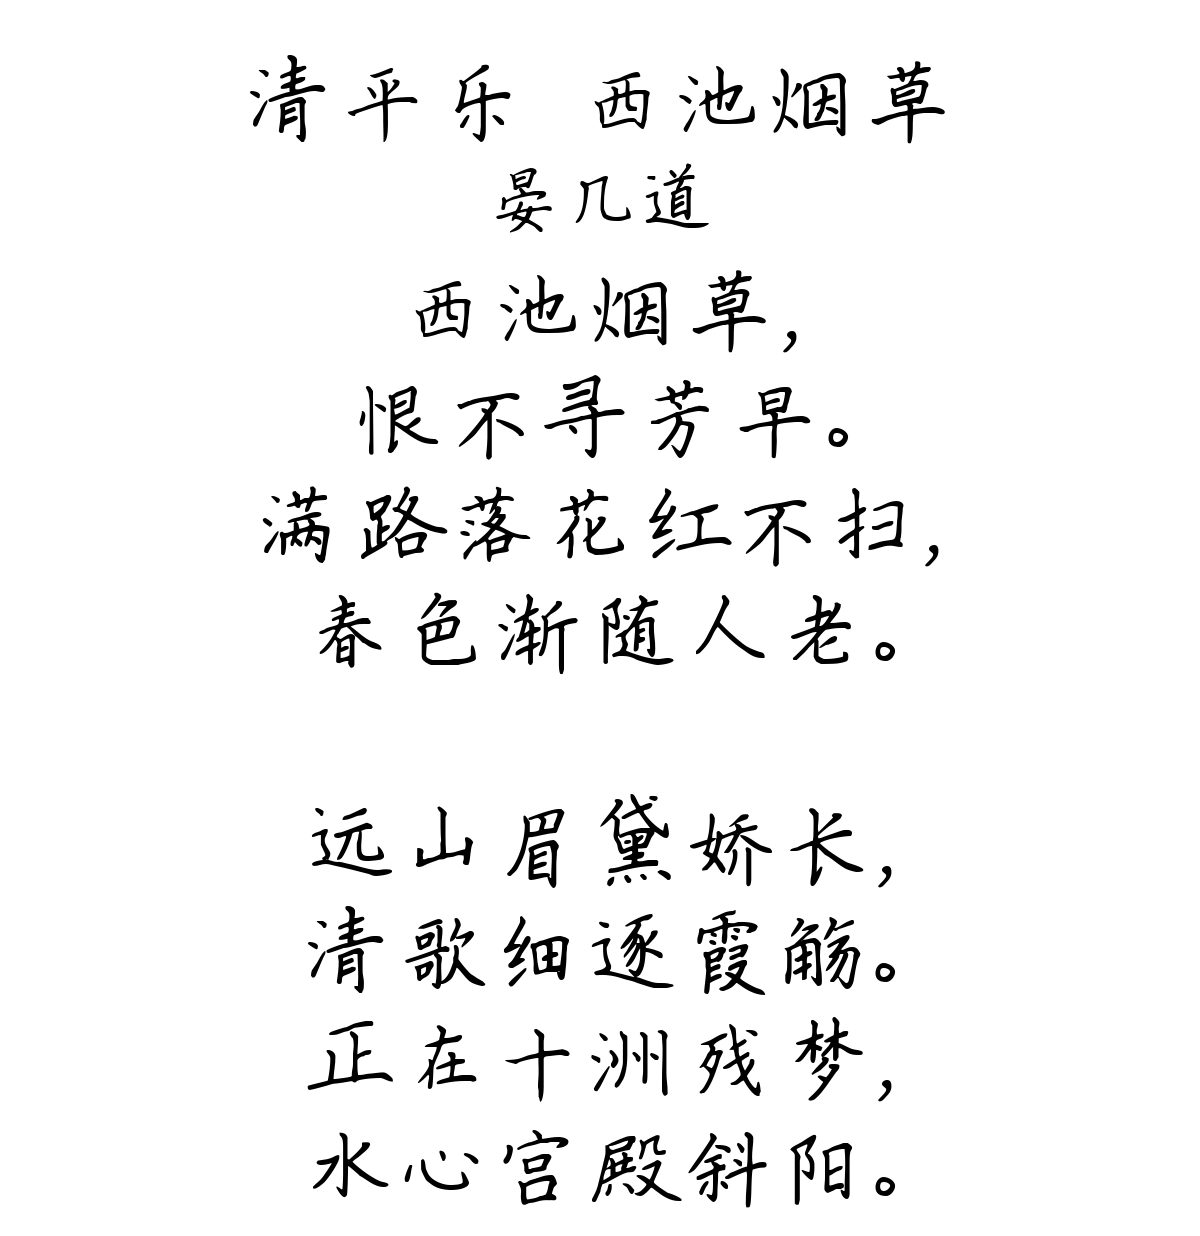 清平乐 西池烟草
晏几道
西池烟草，
恨不寻芳早。
满路落花红不扫，
春色渐随人老。
远山眉黛娇长，
清歌细逐霞觞。
正在十洲残梦，
水心宫殿斜阳。